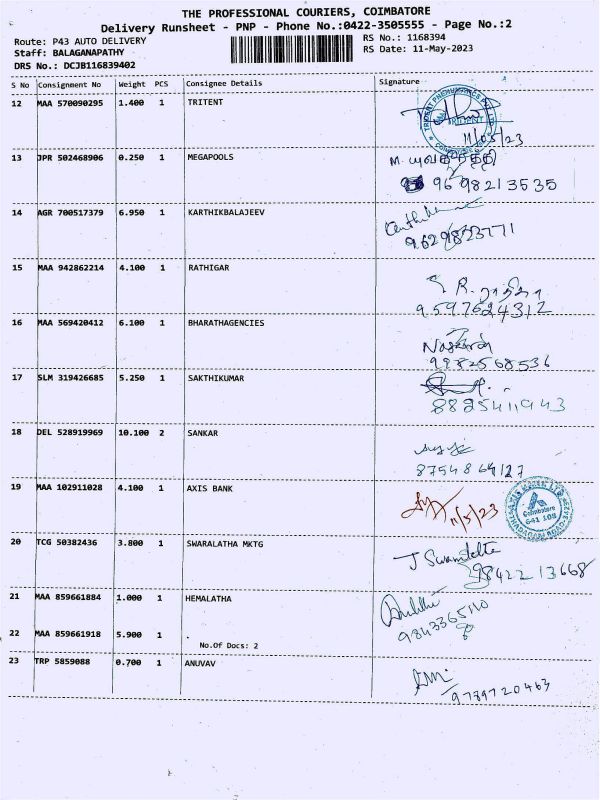 THE PROFESSIONAL COURIERS, COIMBATORE
Delivery Runsheet - PNP - Phone No.:0422-3505555 - Page No.:2
Route: P43 AUTO DELIVERY
Staff: BALAGANAPATHY
DRS No.: DCJB116839402
RS No.: 1168394
RS Date: 11-May-2023
S No Consignment No Weight PCS Consignee Details Signature
12 MAA 570090295 1.400 1 TRITENT
TRIDENT
11/05/23
13 JPR 502468906 0.250 1 MEGAPOOLS
96 98213535
14 AGR 700517379 6.950 1 KARTHIKBALAJEEV
9629823771
15 MAA 942862214 4.100 1 RATHIGAR
R.
9597624312
16 MAA 569420412 6.100 1 BHARATHAGENCIES
17 SLM 319426685 5.250 1 SAKTHIKUMAR
8825411943
18 DEL 528919969 10.100 2 SANKAR
19 MAA 102911028 4.100 1 AXIS BANK
11/5/23
AXIS BANK LTD
Coimbatore
641 108
20 TCG 50382436 3.800 1 SWARALATHA MKTG
J Swaralatha
98422 13668
21 MAA 859661884 1.000 1 HEMALATHA
9843365110
22 MAA 859661918 5.900 1
No.Of Docs: 2
23 TRP 5859088 0.700 1 ANUVAV
9789720463